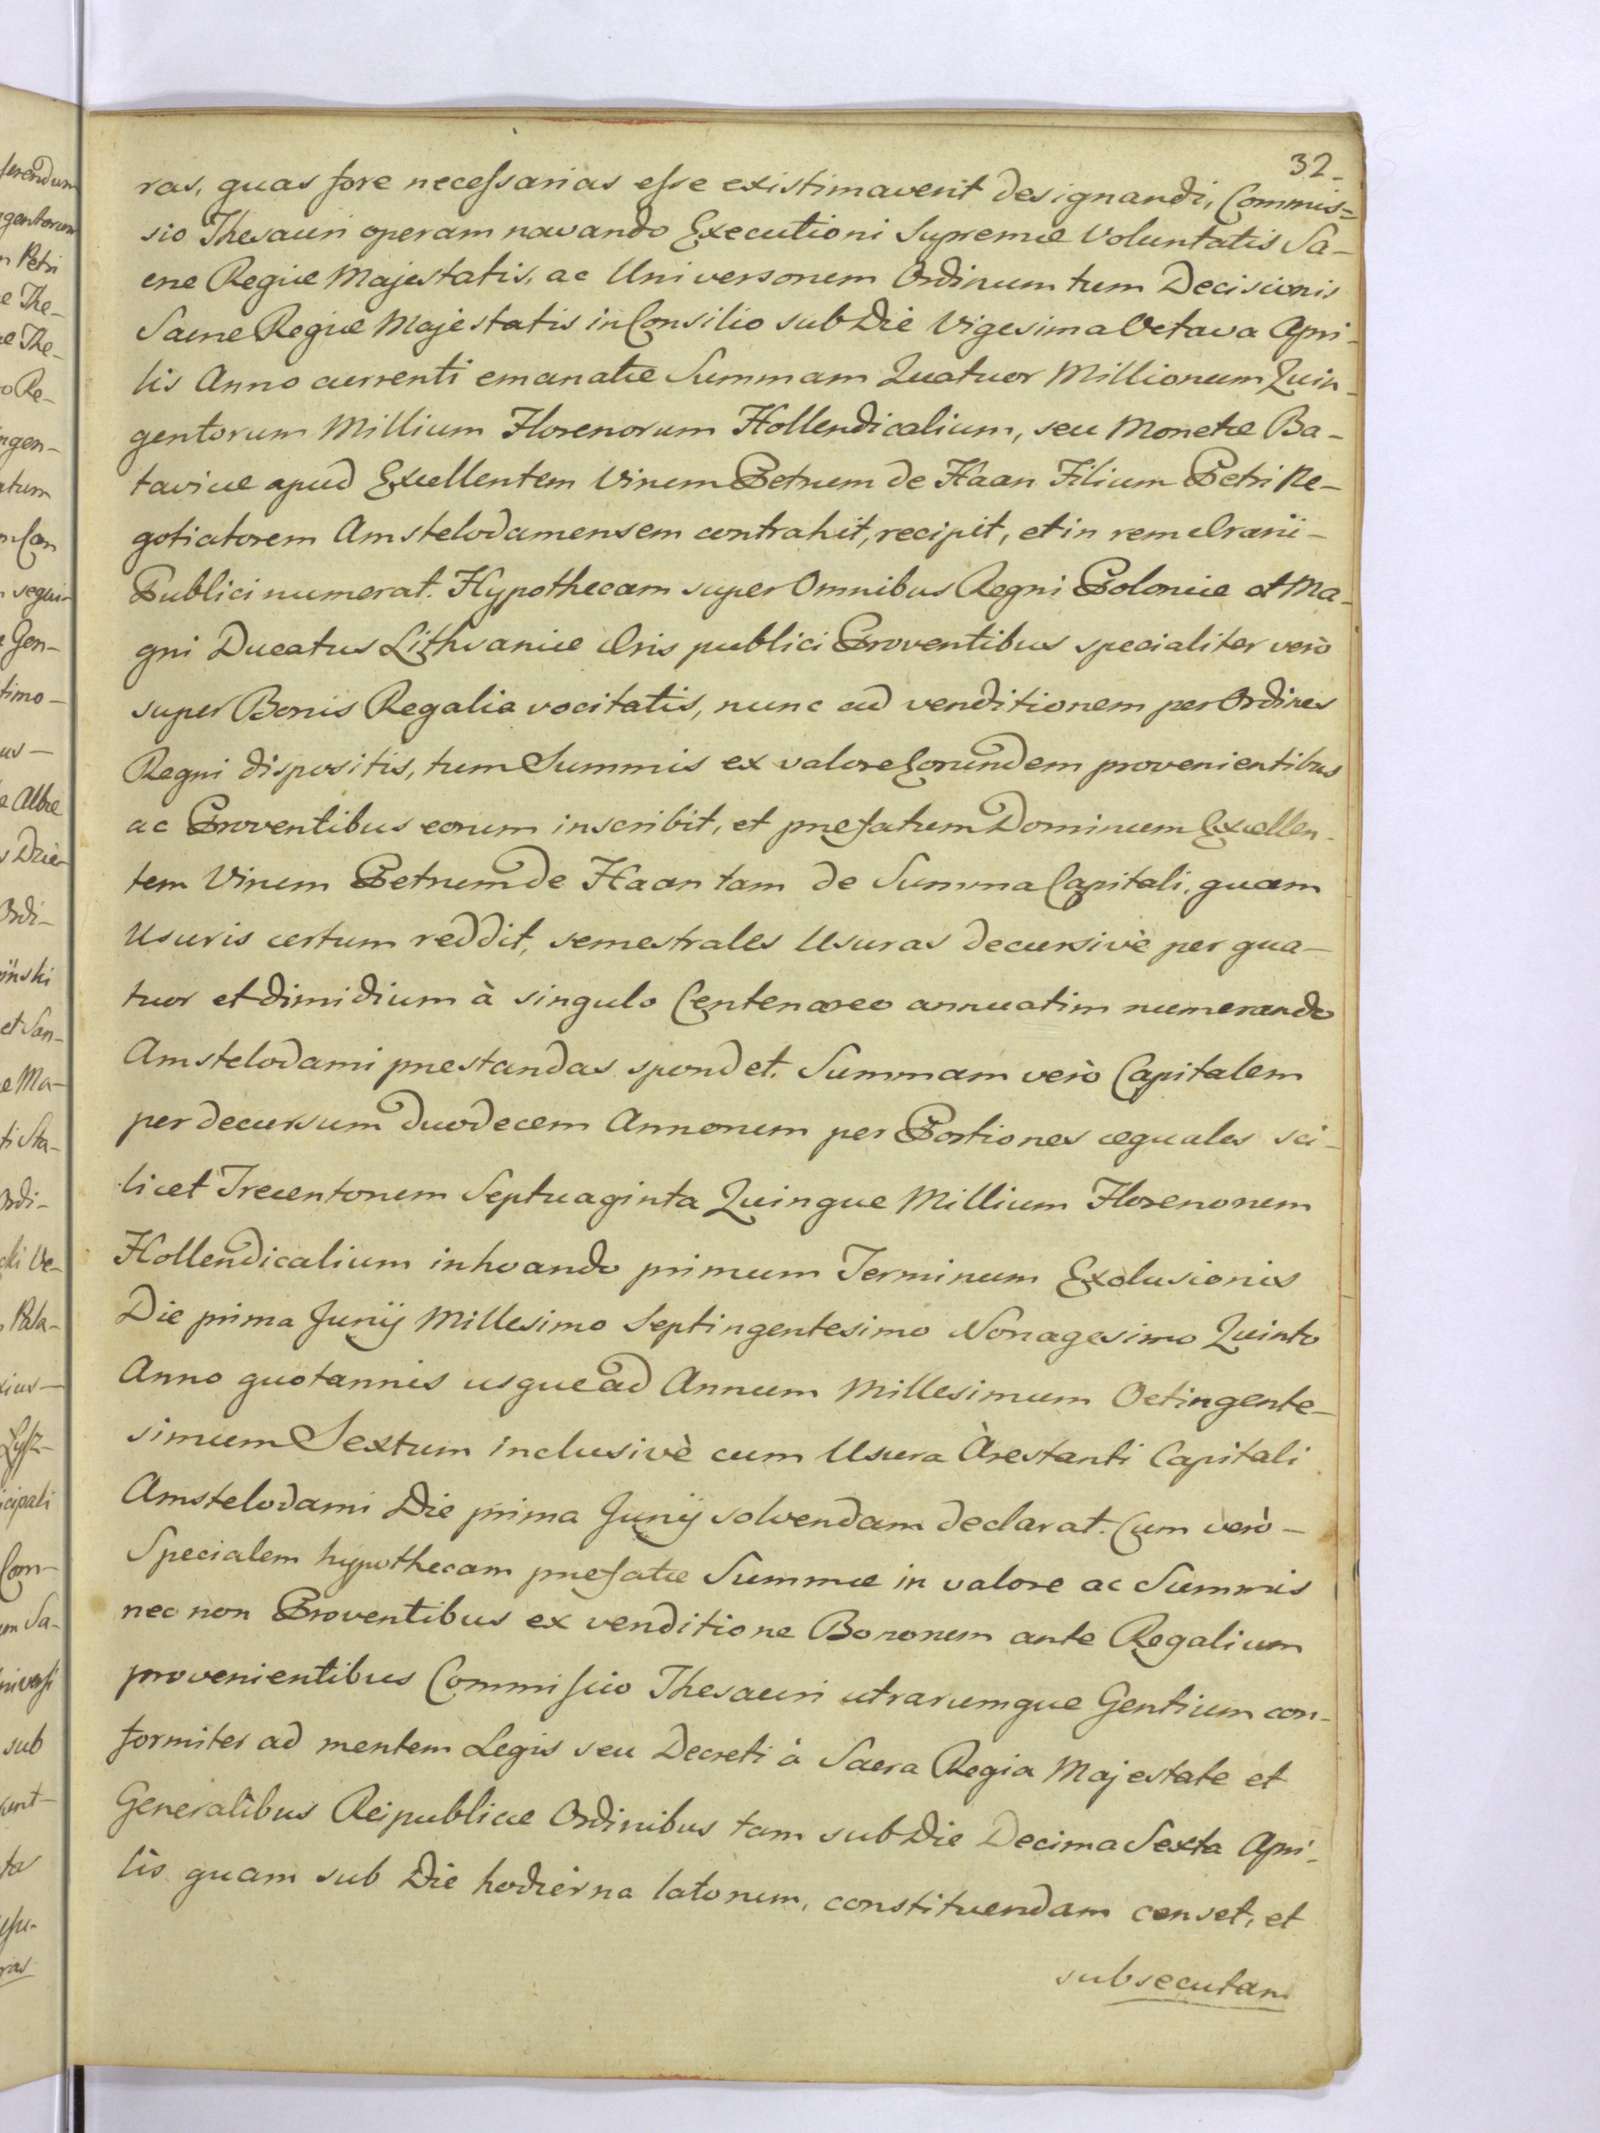 32.
ras, quas fore necessarias esse existimaverit designandi, Commis=
sio Thesauri operam navando Executioni Supremæ Voluntatis Sa-
cræ Regiæ Majestatis, ac Universorum Ordinum tum Decisionis
Sacræ Regiæ Majestatis in Consilio sub Die Vigesima Octava Apri-
lis Anno currenti emanatæ Summam Quatuor Millionum Quin-
gentorum Millium Florenorum Hollendicalium, seu Monetæ Ba-
taviæ apud Excellentem Virum Petrum de Haan Filium Petri Ne-
gotiatorem Amstelodamensem contrahit, recipit, et in rem Ærarii-
Publici numerat. Hypothecam super Omnibus Regni Poloniæ et Ma-
gni Ducatus Lithvaniæ Æris publici Proventibus specialiter verò
super Bonis Regalia vocitatis, nunc ad venditionem per Ordines
Regni dispositis, tum Summis ex valore Eorundem provenientibus
ac Proventibus eorum inscribit, et præfatum Dominum Excellen-
tem Virum Petrum de Haan tam de Summa Capitali, quam
Usuris certum reddit, semestrales Usuras decursivè per qua-
tuor et dimidium à singulo Centenareo annuatim numerando
Amstelodami præstandas spondet. Summam verò Capitalem
per decursum duodecem Annorum per Portiones æquales sci-
licet Trecentorum Septuaginta Quinque Millium Florenorum
Hollendicalium inhoando primum Terminum Exolusionis
Die prima Junij Millesimo Septingentesimo Nonagesimo Quinto
Anno quotannis usque ad Annum Millesimum Octingente-
simum Sextum inclusivè cum Usura Àrestanti Capitali
Amstelodami Die prima Junij solvendam declarat. Cum verò-
Specialem hypothecam præfatæ Summæ in valore ac Summis
nec non Proventibus ex venditione Bonorum ante Regalium
provenientibus Commissio Thesauri utrarumque Gentium con-
formiter ad mentem Legis seu Decreti à Sacra Regia Majestate et
Generalibus Reipublicæ Ordinibus tam sub Die Decima Sexta Apri-
lis quam sub Die hodierna latorum, constituendam censet, et
subsecutam